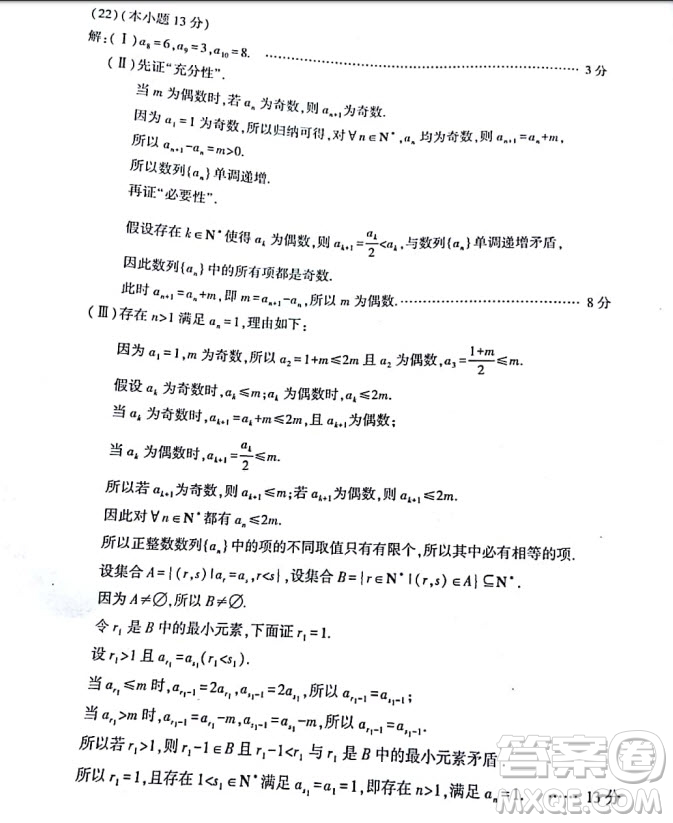 (22)(本小题13分)
解:(Ⅰ)a₈=6,a₉=3,a₁₀=8. ……………………………………………………… 3分
(Ⅱ)先证“充分性”.
当m为偶数时,若aₙ为奇数,则aₙ₊₁为奇数.
因为a₁=1为奇数,所以归纳可得,对∀n∈N*,aₙ均为奇数,则aₙ₊₁=aₙ+m,
所以aₙ₊₁-aₙ=m>0.
所以数列{aₙ}单调递增.
再证“必要性”.
假设存在k∈N*使得aₖ为偶数,则aₖ₊₁=aₖ/2<aₖ,与数列{aₙ}单调递增矛盾,
因此数列{aₙ}中的所有项都是奇数.
此时aₙ₊₁=aₙ+m,即m=aₙ₊₁-aₙ,所以m为偶数.…………………………… 8分
(Ⅲ)存在n>1满足aₙ=1,理由如下:
因为a₁=1,m为奇数,所以a₂=1+m≤2m且a₂为偶数,a₃=(1+m)/2≤m.
假设aₖ为奇数时,aₖ≤m;aₖ为偶数时,aₖ≤2m.
当aₖ为奇数时,aₖ₊₁=aₖ+m≤2m,且aₖ₊₁为偶数;
当aₖ为偶数时,aₖ₊₁=aₖ/2≤m.
所以若aₖ₊₁为奇数,则aₖ₊₁≤m;若aₖ₊₁为偶数,则aₖ₊₁≤2m.
因此对∀n∈N*都有aₙ≤2m.
所以正整数数列{aₙ}中的项的不同取值只有有限个,所以其中必有相等的项.
设集合A={(r,s)|aᵣ=aₛ,r<s},设集合B={r∈N*|(r,s)∈A}⊆N*.
因为A≠∅,所以B≠∅.
令r₁是B中的最小元素,下面证r₁=1.
设r₁>1且a_{r₁}=a_{s₁}(r₁<s₁).
当a_{r₁}≤m时,a_{r₁-1}=2a_{r₁},a_{s₁-1}=2a_{s₁},所以a_{r₁-1}=a_{s₁-1};
当a_{r₁}>m时,a_{r₁-1}=a_{r₁}-m,a_{s₁-1}=a_{s₁}-m,所以a_{r₁-1}=a_{s₁-1}.
所以若r₁>1,则r₁-1∈B且r₁-1<r₁与r₁是B中的最小元素矛盾
所以r₁=1,且存在1<s₁∈N*满足a_{s₁}=a₁=1,即存在n>1,满足aₙ=1. …… 13分
答案卷
MXQE.COM